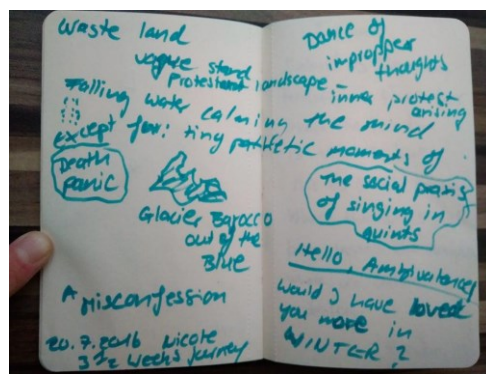 Waste land
vogue stand
Protestant landscape
Falling water calming the mind
except for: tiny pathetic moments of
Death
panic
Glacier Barocco
out of the
Blue
A Misconfession
20.7.2016
3 1/2 weeks journey
Dance of
impropper
thoughts
inner protest
arising
The social praxis
of singing in
quints
Hello, Ambivalency
Would I have loved
you more in
WINTER?